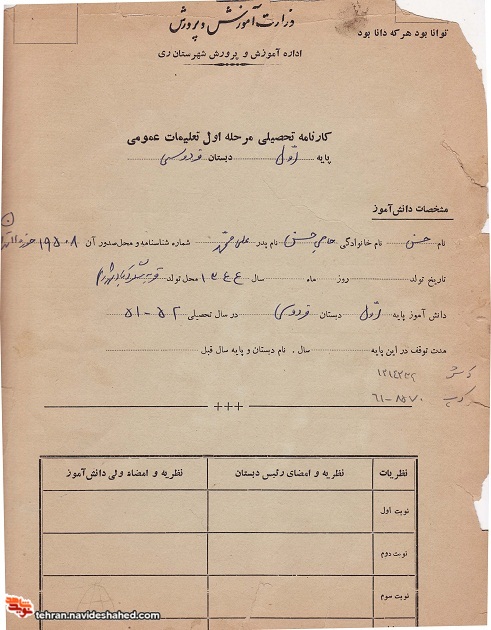 توانا بود هر که دانا بود
وزارت آموزش و پرورش
اداره آموزش و پرورش شهرستان ری
کارنامه تحصیلی مرحله اول تعلیمات عمومی
پایه اول دبستان فردوسی
مشخصات دانش‌آموز
نام حسن نام خانوادگی حاجی حسنی نام پدر علی محمد شماره شناسنامه و محل صدور آن ۱۹۵۰۸
تاریخ تولد روز ماه سال ۱۳۴۴ محل تولد
دانش آموز پایه اول دبستان فردوسی در سال تحصیلی ۵۲-۵۱
مدت توقف در این پایه سال . نام دبستان و پایه سال قبل
+++
نظریات نظریه و امضای رئیس دبستان نظریه و امضاء ولی دانش‌آموز
نوبت اول
نوبت دوم
نوبت سوم
tehran.navideshahed.com